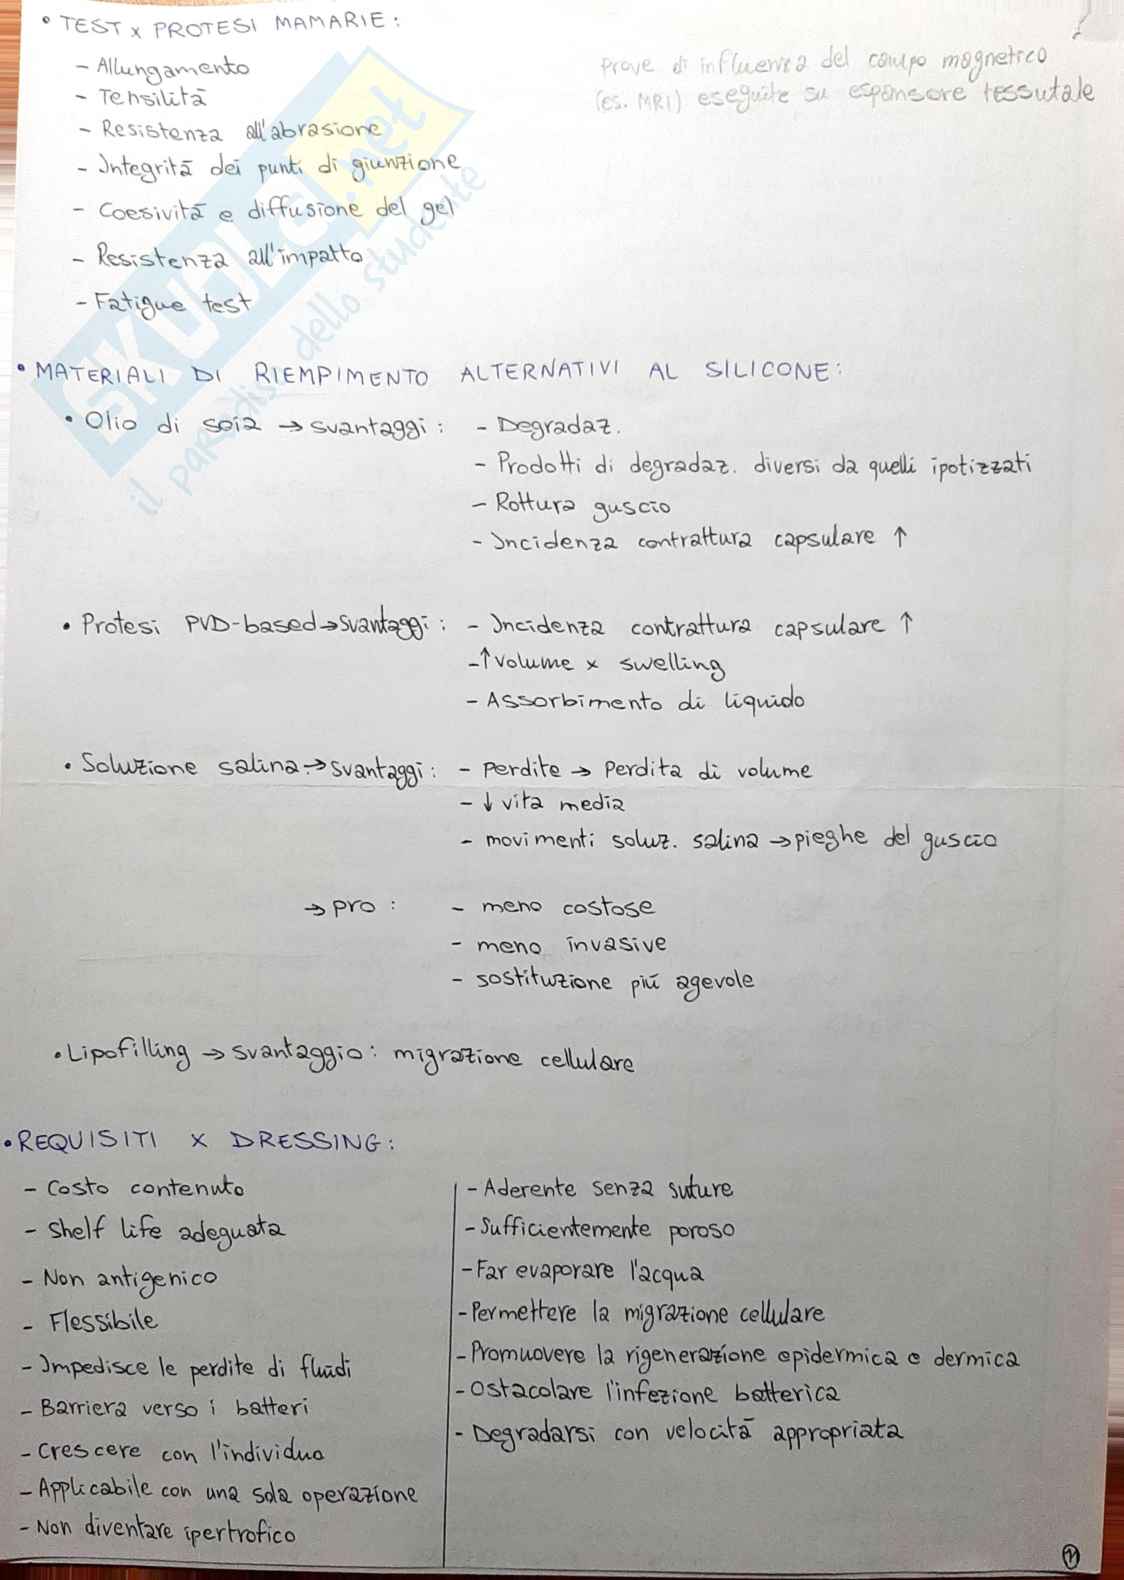 • TEST x PROTESI MAMARIE:
- Allungamento
- Tensilità
- Resistenza all'abrasione
- Integrità dei punti di giunzione
- Coesività e diffusione del gel
- Resistenza all'impatto
- Fatigue test
?
Prove di influenza del campo magnetico
(es. MRI) eseguite su espansore tessutale
SKUOLA.net
il paradiso dello studente
• MATERIALI DI RIEMPIMENTO ALTERNATIVI AL SILICONE:
• Olio di soia → svantaggi: - Degradaz.
- Prodotti di degradaz. diversi da quelli ipotizzati
- Rottura guscio
- Incidenza contrattura capsulare ↑
• Protesi PVD-based → svantaggi: - Incidenza contrattura capsulare ↑
- ↑ volume x swelling
- Assorbimento di liquido
• Soluzione salina → svantaggi: - perdite → perdita di volume
- ↓ vita media
- movimenti soluz. salina → pieghe del guscio
→ pro: - meno costose
- meno invasive
- sostituzione più agevole
• Lipofilling → svantaggio: migrazione cellulare
• REQUISITI X DRESSING:
- Costo contenuto
- Shelf life adeguata
- Non antigenico
- Flessibile
- Impedisce le perdite di fluidi
- Barriera verso i batteri
- Crescere con l'individuo
- Applicabile con una sola operazione
- Non diventare ipertrofico
- Aderente senza suture
- Sufficientemente poroso
- Far evaporare l'acqua
- Permettere la migrazione cellulare
- Promuovere la rigenerazione epidermica e dermica
- Ostacolare l'infezione batterica
- Degradarsi con velocità appropriata